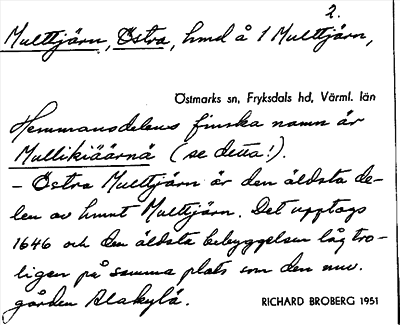 2.
Multtjärn, Östra, hmd å 1 Multtjärn,
Östmarks sn, Fryksdals hd, Värml. län
Hemmansdelens finska namn är
Mullikiäärnä (se detta!).
– Östra Multtjärn är den äldsta de-
len av hmnt Multtjärn. Det upptogs
1646 och den äldsta bebyggelsen låg tro-
ligen på samma plats som den nuv.
gården Alakylä.
RICHARD BROBERG 1951